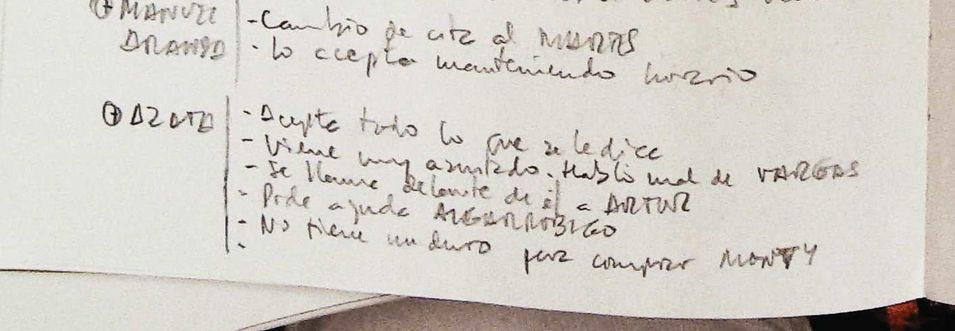 MANUEL
ARANDA
- Cambio de cita al MARTES
- Lo acepta manteniendo horario
AZATA
- Acepta todo lo que se le dice
- Viene muy asustado. Habló mal de VARGAS
- Se llama delante de él a ARTUR
- Pide ayuda ALGARROBICO
- No tiene un duro para comprar MONTY